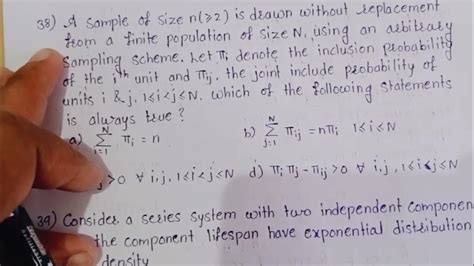 38) A sample of size n(≥2) is drawn without replacement
from a finite population of size N, using an arbitrary
sampling scheme. Let πi denote the inclusion probability
of the ith unit and πij, the joint include probability of
units i & j, 1≤i<j≤N. which of the following statements
is always true?
a) N∑i=1 πi = n b) N∑j=1 πij = nπi 1≤i≤N
>0 ∀ i,j, 1≤i<j≤N d) πiπj-πij>0 ∀ i,j, 1≤i<j≤N
39) Consider a series system with two independent componen
the component lifespan have exponential distribution
density